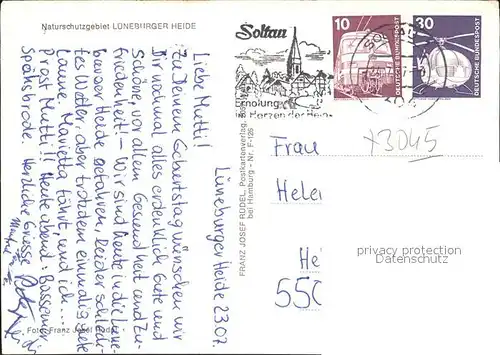 Naturschutzgebiet LÜNEBURGER HEIDE
Lüneburger Heide 23.02.
Liebe Mutti!
Zu Deinem Geburtstag wünschen wir
Dir nochmal alles erdenklich Gute und
Schöne, vor allem Gesundheit und Zu-
friedenheit! – Wir sind heute in die Lüne-
burger Heide gefahren, leider schlech-
tes Wetter, aber trotzdem einmalig gute
Laune. Marietta fährt, und ich ...
Prost Mutti!! Heute abend: Bassumer
Spöksbrode. Herzliche Grüsse
Foto: Franz Josef Rüdel
FRANZ JOSEF RÜDEL, Postkartenverlag,
bei Hamburg · Nr. F-126
Soltau
Erholung
im Herzen der Heide
10
DEUTSCHE BUNDESPOST
30
DEUTSCHE BUNDESPOST
x3045
Frau
Helen
He
550
privacy protection
akpool.com